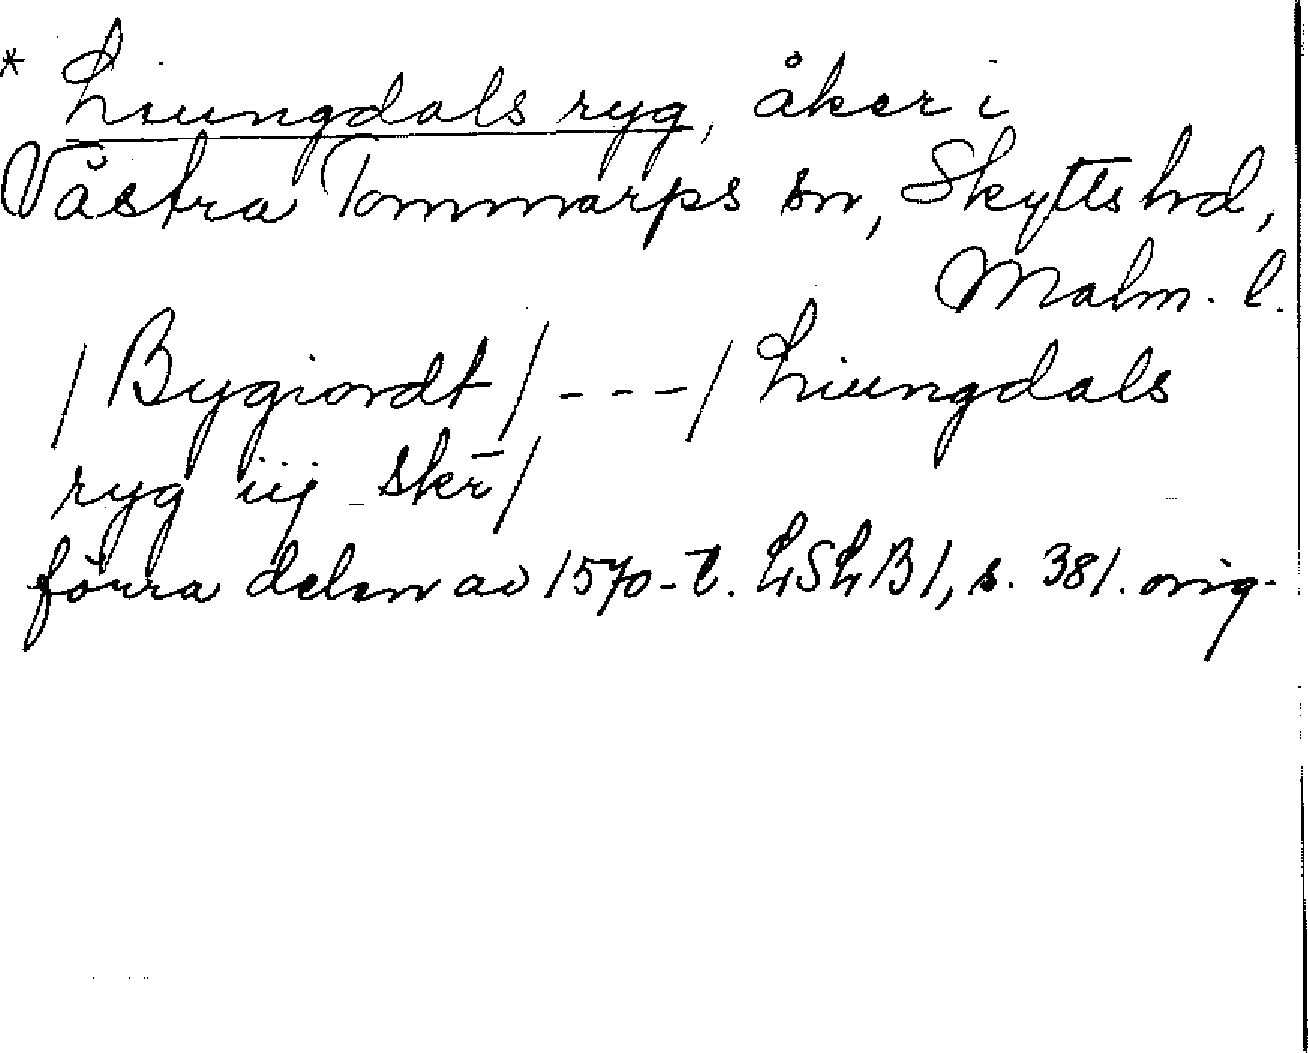 * Liungdals ryg, åker i
Västra Tommarps sn, Skytts hd,
Malm. l.
/ Bygiordt / - - - / Liungdals
ryg iij skr̄ /
förra delen av 1570-t. LSLB1, s. 381. orig.